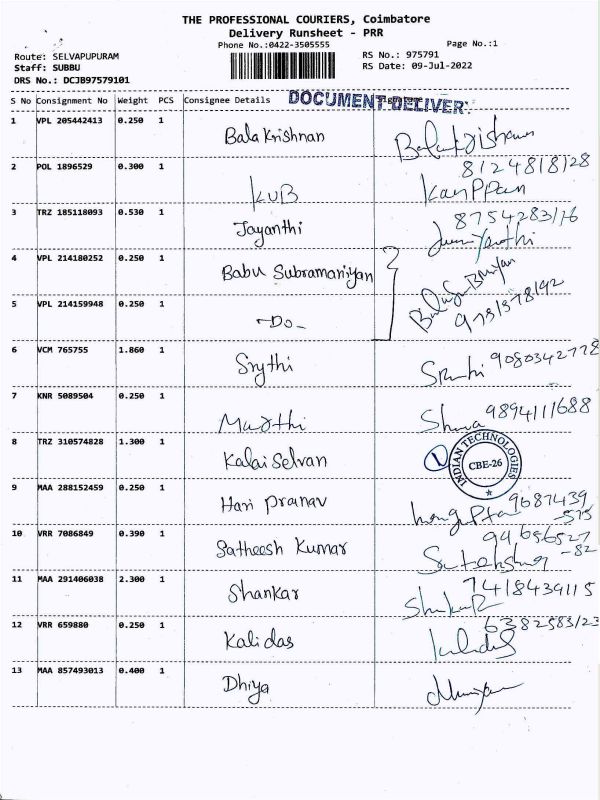 THE PROFESSIONAL COURIERS, Coimbatore
Delivery Runsheet - PRR
Phone No.:0422-3505555
Page No.:1
Route: SELVAPUPURAM
Staff: SUBBU
DRS No.: DCJB97579101
RS No.: 975791
RS Date: 09-Jul-2022
S No Consignment No Weight PCS Consignee Details
DOCUMENT DELIVER
1 VPL 205442413 0.250 1 Bala Krishnan
2 POL 1896529 0.300 1 KUB 8124818128
3 TRZ 185118093 0.530 1 Jayanthi 8754283116
4 VPL 214180252 0.250 1 Babu Subramaniyan
5 VPL 214159948 0.250 1 -Do- 9731378192
6 VCM 765755 1.860 1 Srythi 9080342778
7 KNR 5089504 0.250 1 Marthi 9894111688
8 TRZ 310574828 1.300 1 Kalai Selvan
INDIAN TECHNOLOGIES
CBE-26
9 MAA 288152459 0.250 1 Hari Pranav 9687439
-575
10 VRR 7086849 0.390 1 Satheesh Kumar 94656527
-82
11 MAA 291406038 2.300 1 Shankar 7418439115
12 VRR 659880 0.250 1 Kalidas 6382583123
13 MAA 857493013 0.400 1 Dhiya